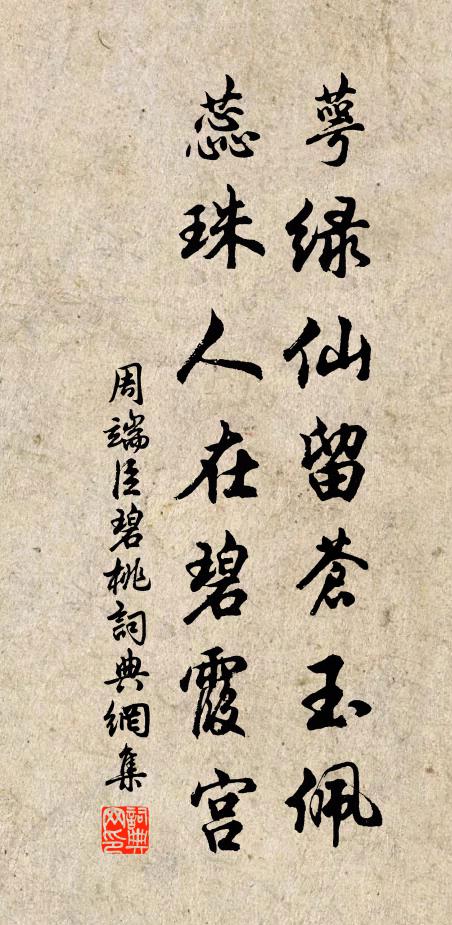 萼绿仙留苍玉佩
蕊珠人在碧霞宫
周端臣碧桃詞典網集
詞典网印